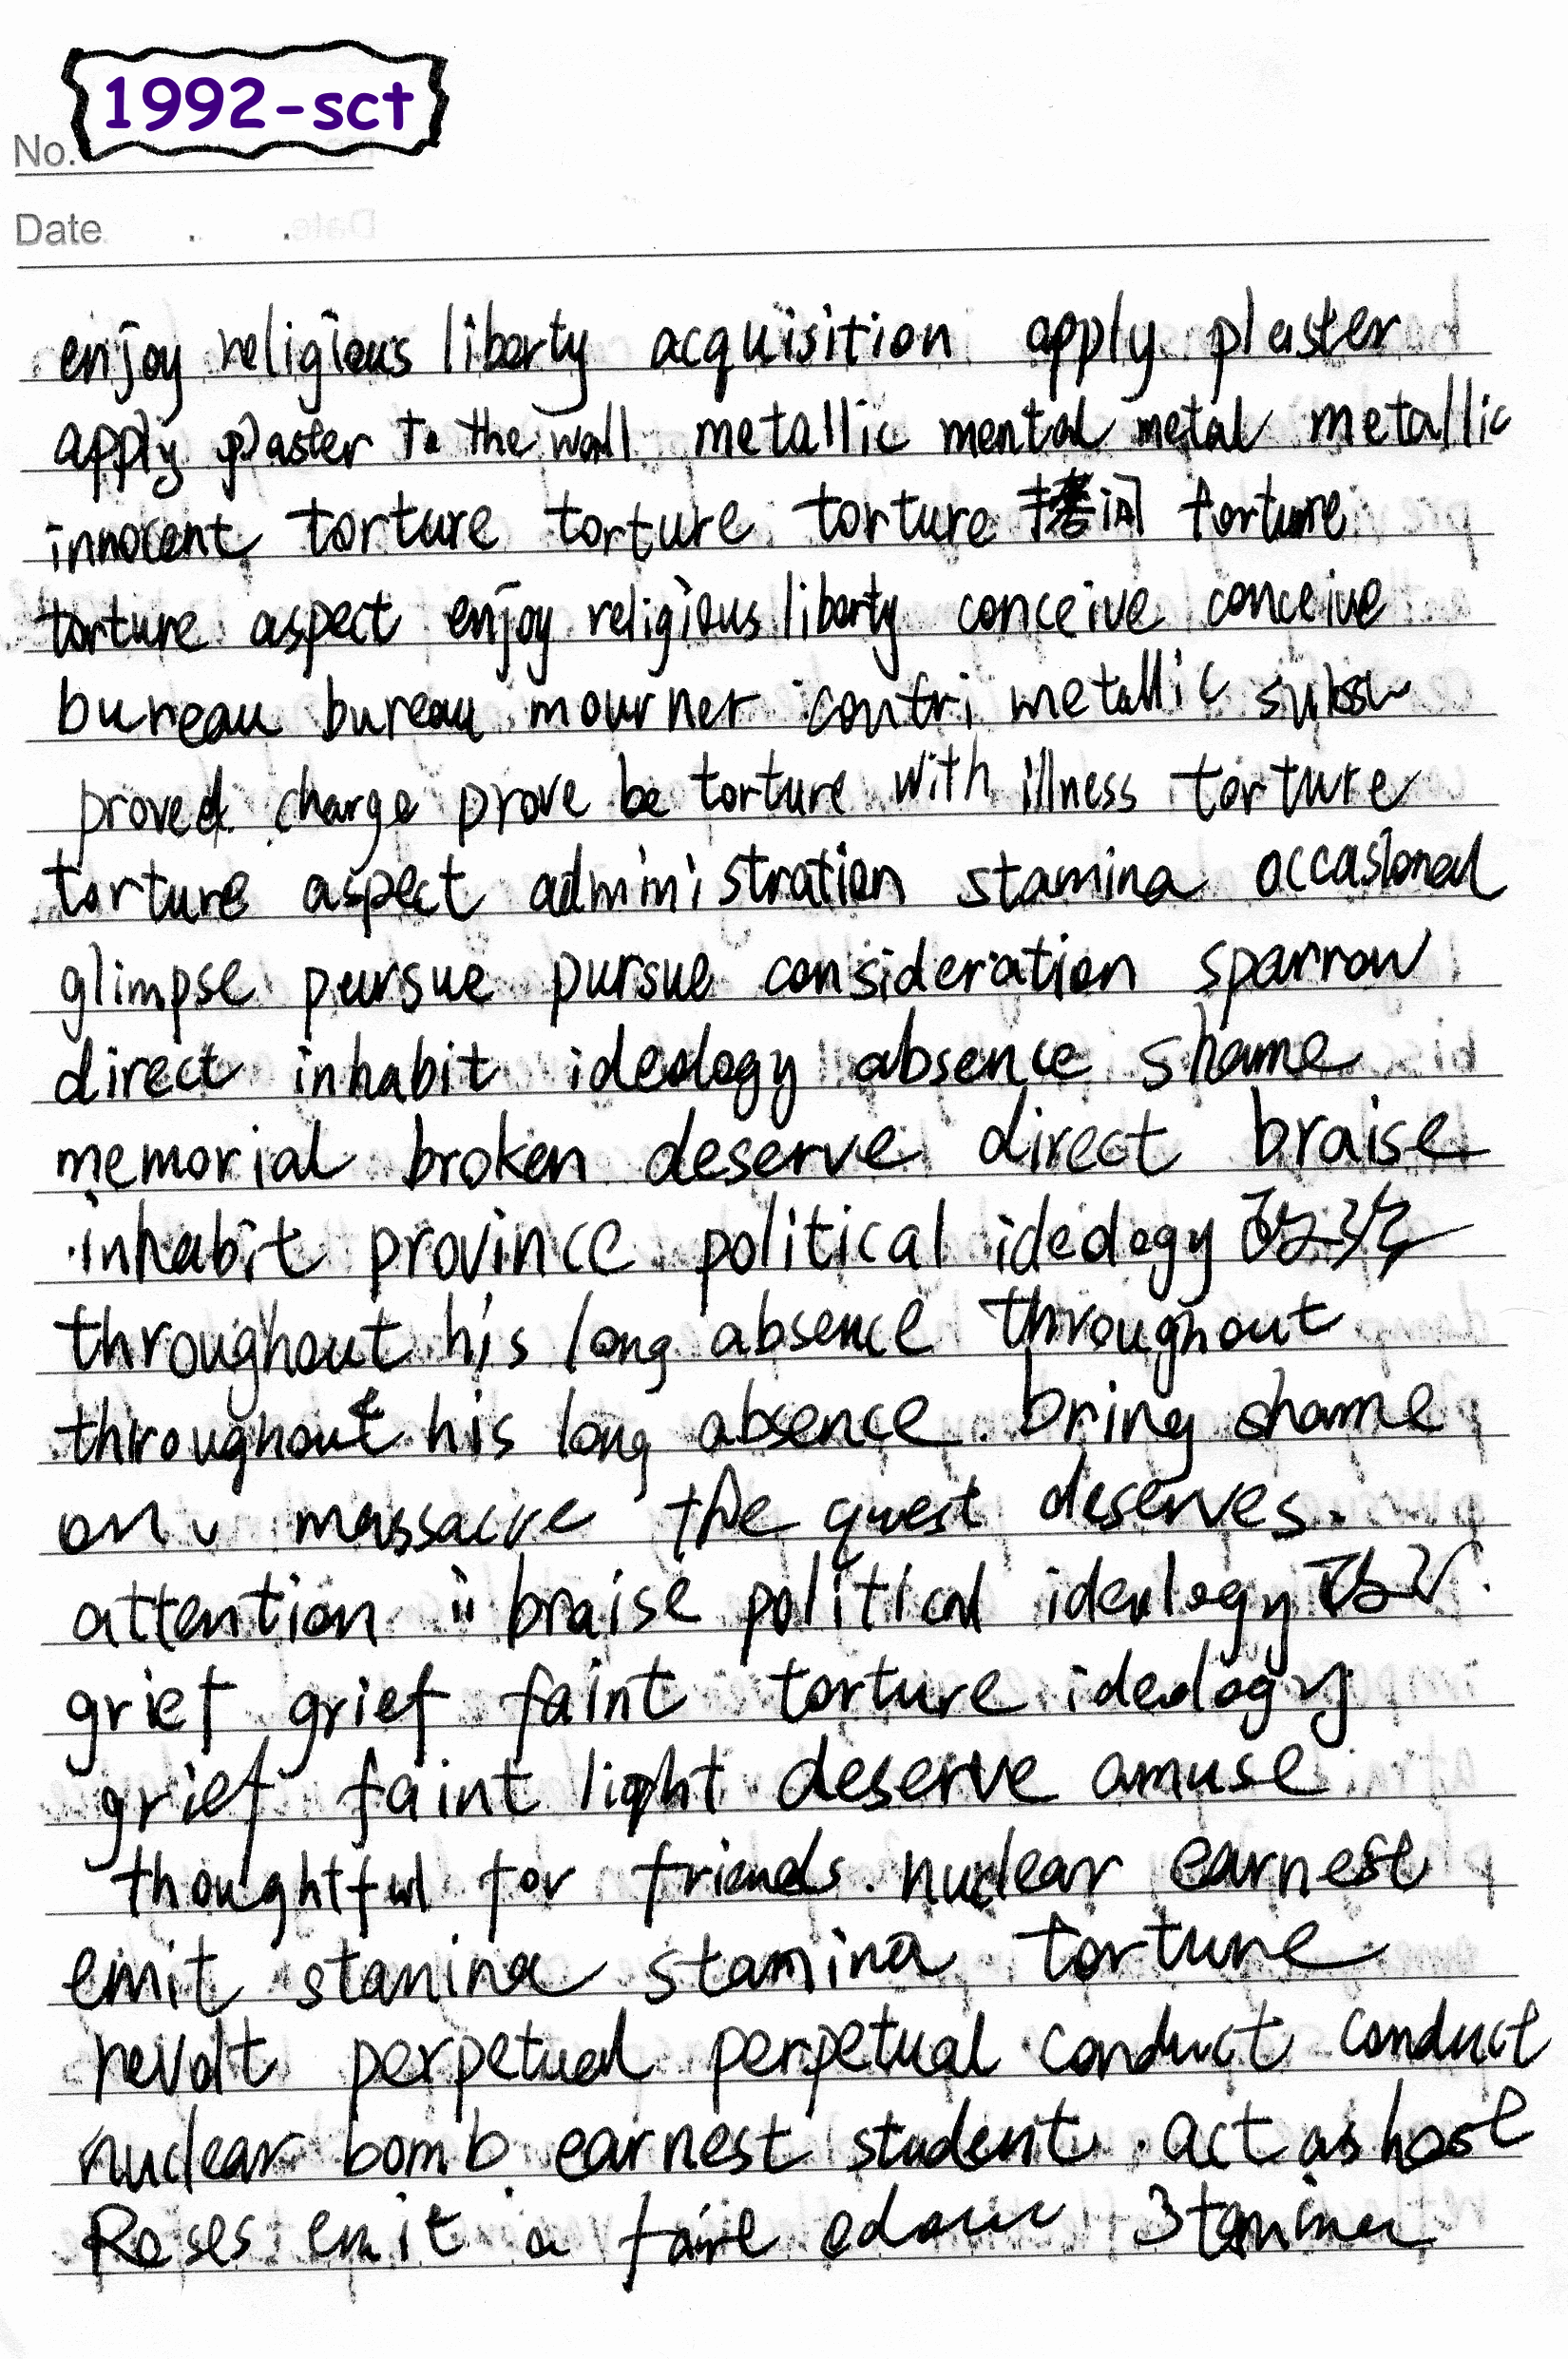 1992-sct
No.
Date . .
enjoy religious liberty acquisition apply plaster
apply plaster to the wall metallic mental metal metallic
innocent torture torture torture 拷问 torture
torture aspect enjoy religious liberty conceive conceive
bureau bureau mourner contri metallic
proved charge prove be torture with illness torture
torture aspect administration stamina occasional
glimpse pursue pursue consideration sparrow
direct inhabit ideology absence shame
memorial broken deserve direct braise
inhabit province political ideology
throughout his long absence throughout
throughout his long absence bring shame
on massacre the quest deserves.
attention braise political ideology
grief grief faint torture ideology
grief faint light deserve amuse
thoughtful for friends. nuclear earnest
emit stamina stamina torture
revolt perpetual perpetual conduct conduct
nuclear bomb earnest student act as host
Roses emit a